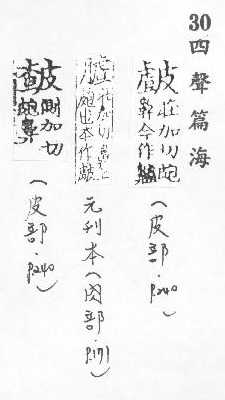 30四聲篇海
皻莊加切皰鼻今作齇(皮部·P.240)
加切鼻上皰也本作皻 元刊本(肉部·P.171)
側加切皰鼻(皮部·P.240)